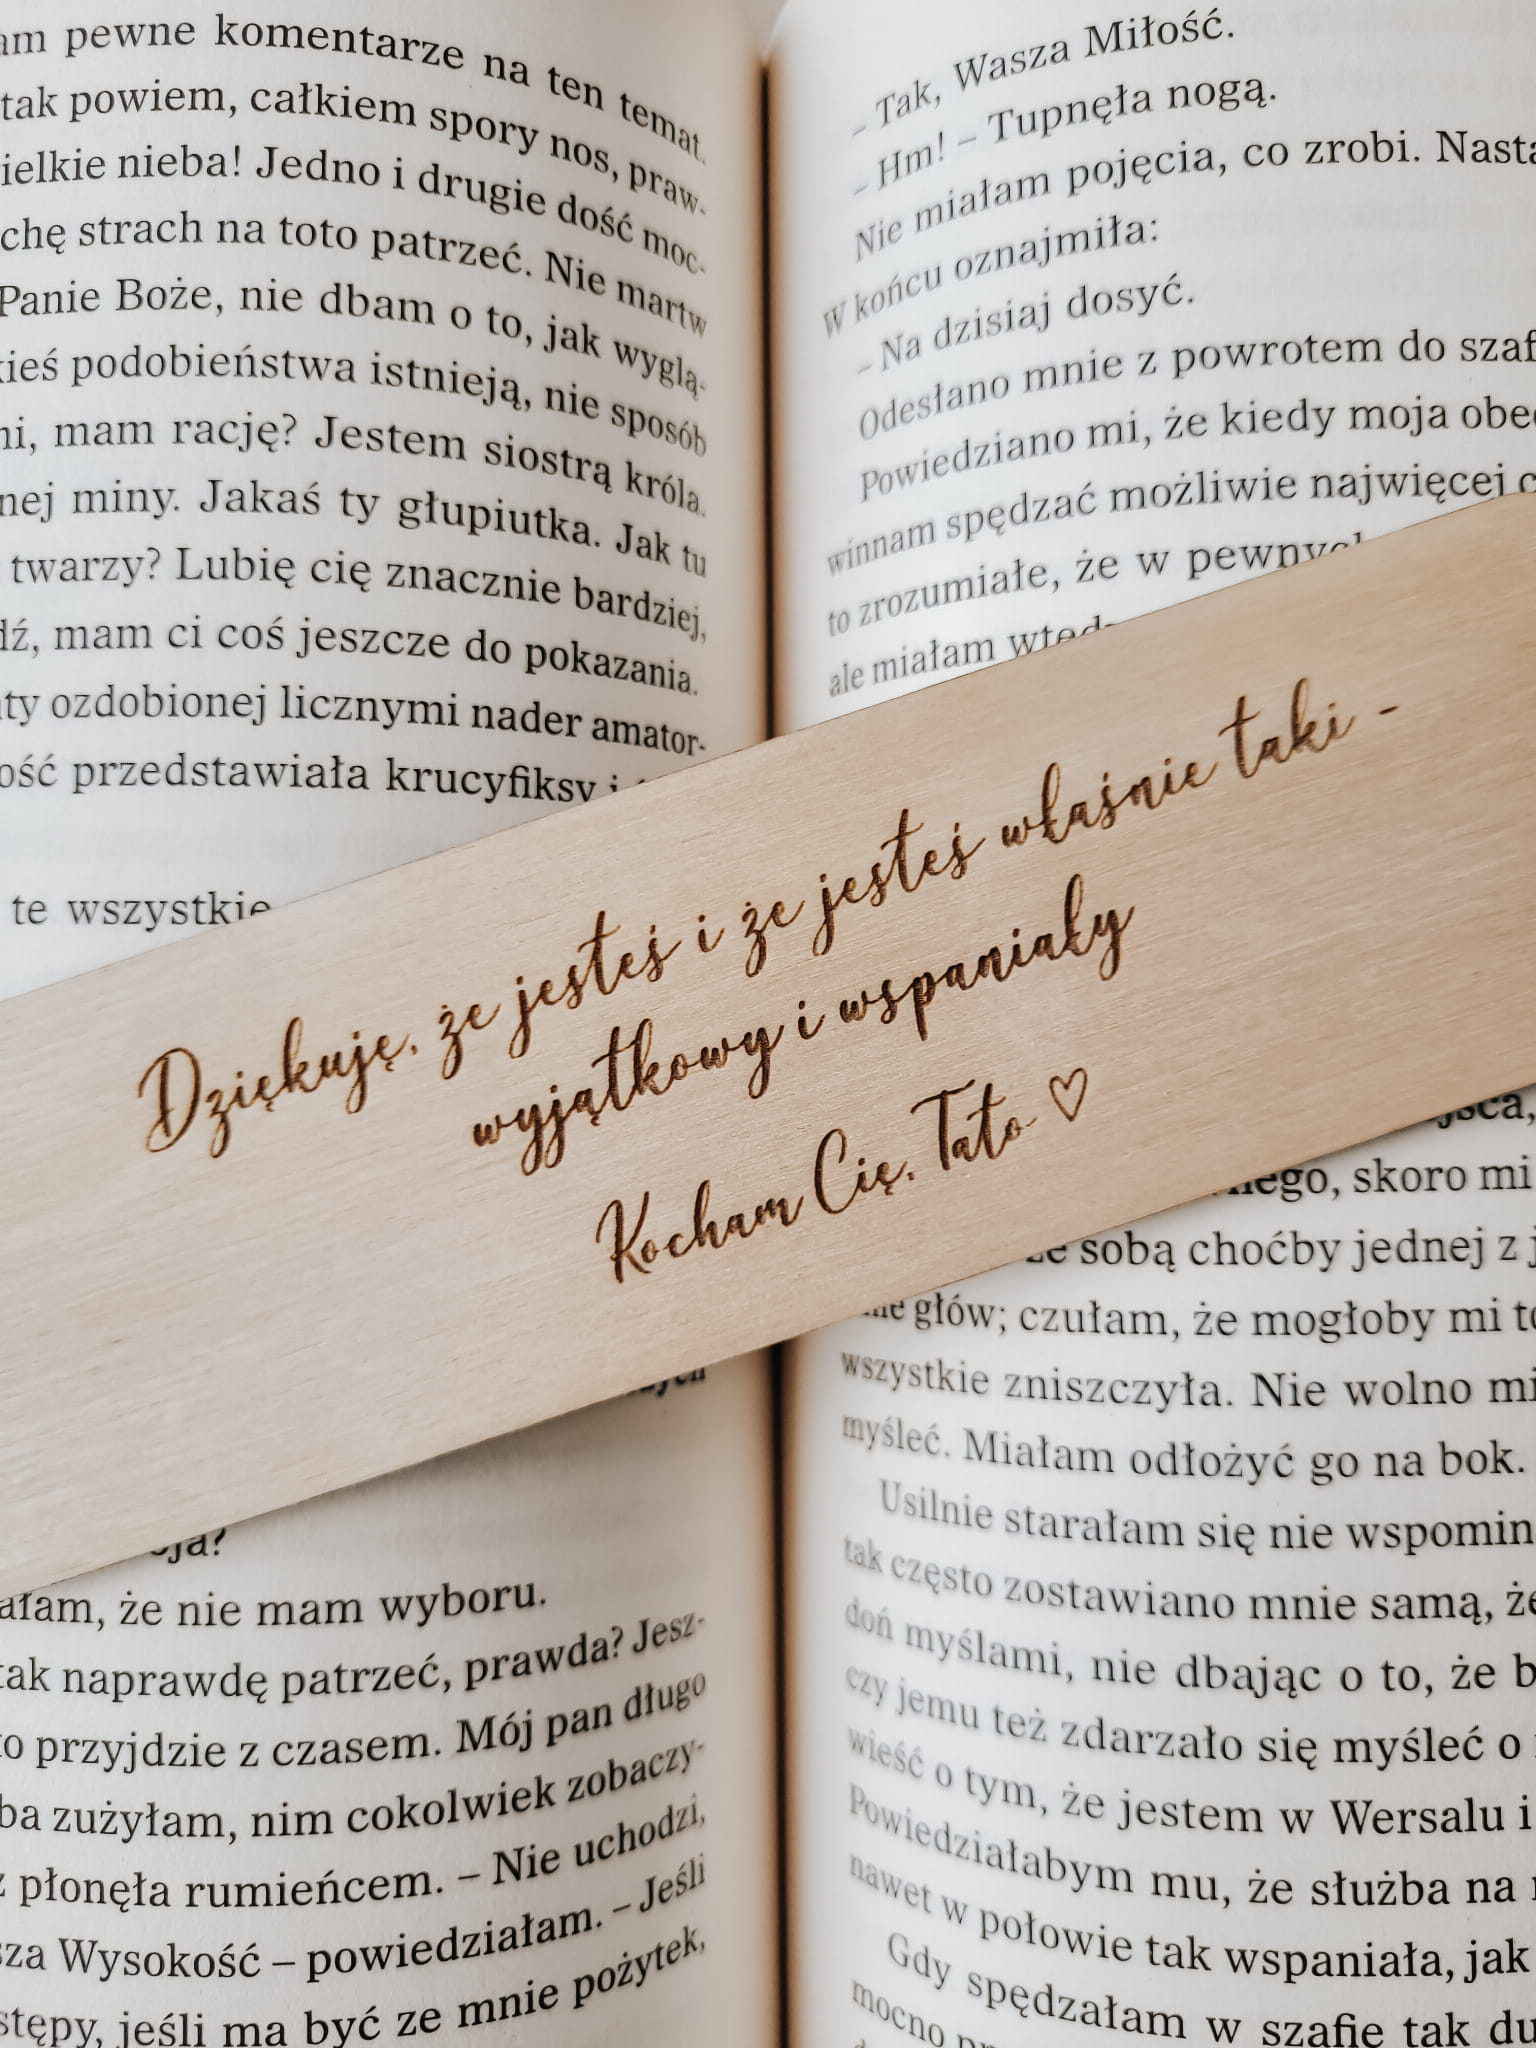 pewne komentarze na ten temat.
tak powiem, całkiem spory nos, praw-
nieba! Jedno i drugie dość moc-
strach na toto patrzeć. Nie martw
Panie Boże, nie dbam o to, jak wyglą-
podobieństwa istnieją, nie sposób
mam rację? Jestem siostrą króla.
miny. Jakaś ty głupiutka. Jak tu
twarzy? Lubię cię znacznie bardziej,
mam ci coś jeszcze do pokazania.
ozdobionej licznymi nader amator-
przedstawiała krucyfiksy i
te wszystkie
Dziękuję, że jesteś i że jesteś właśnie taki -
wyjątkowy i wspaniały
Kocham Cię, Tato ♡
że nie mam wyboru.
tak naprawdę patrzeć, prawda? Jesz-
przyjdzie z czasem. Mój pan długo
zużyłam, nim cokolwiek zobaczy-
płonęła rumieńcem. – Nie uchodzi,
Wysokość – powiedziałam. – Jeśli
jeśli ma być ze mnie pożytek,
– Tak, Wasza Miłość.
– Hm! – Tupnęła nogą.
Nie miałam pojęcia, co zrobi. Nasta
W końcu oznajmiła:
– Na dzisiaj dosyć.
Odesłano mnie z powrotem do szaf
Powiedziano mi, że kiedy moja obe
winnam spędzać możliwie najwięcej
to zrozumiałe, że w pewnych
ale miałam wtedy
skoro mi
ze sobą choćby jednej z
głów; czułam, że mogłoby mi to
wszystkie zniszczyła. Nie wolno mi
myśleć. Miałam odłożyć go na bok.
Usilnie starałam się nie wspomin
tak często zostawiano mnie samą, że
doń myślami, nie dbając o to, że b
czy jemu też zdarzało się myśleć o
wieść o tym, że jestem w Wersalu i
Powiedziałabym mu, że służba na
nawet w połowie tak wspaniała, jak
Gdy spędzałam w szafie tak du
mocno